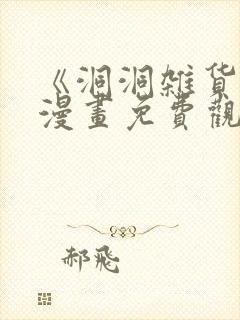 《洞洞雑货
漫畫免費觀
郝飛